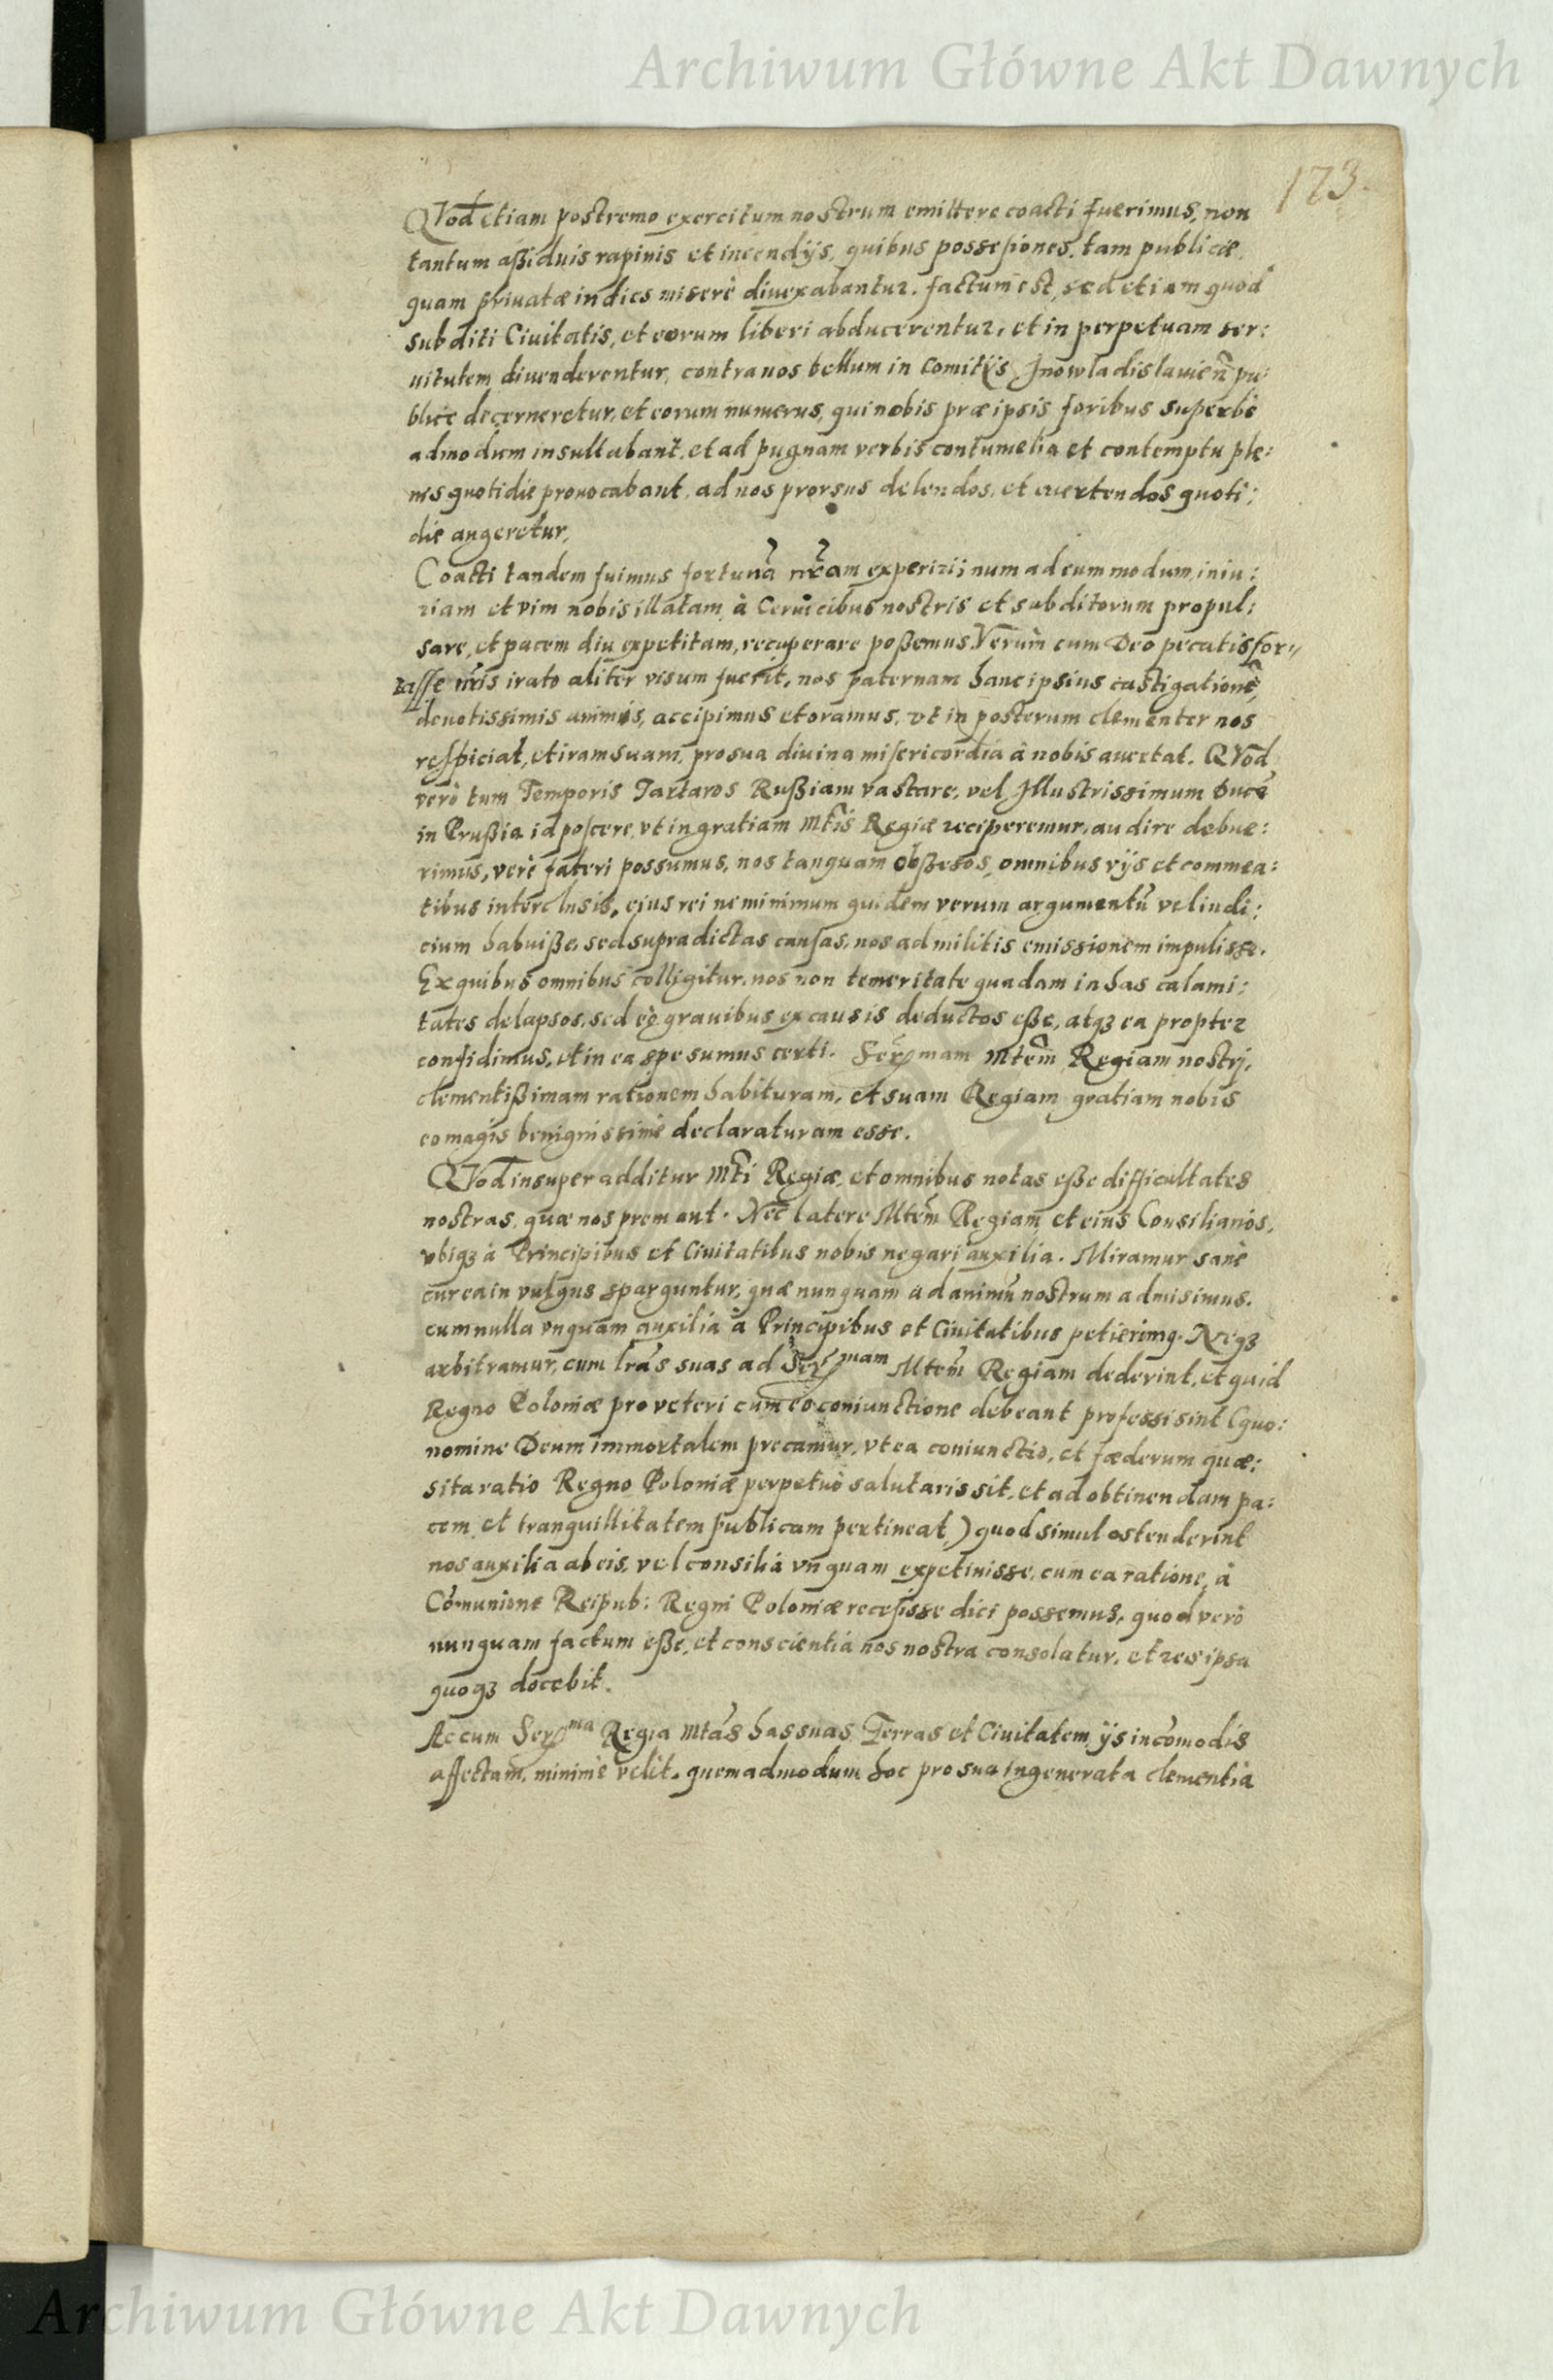 Archiwum Główne Akt Dawnych
173.
QVod etiam postremo exercitum nostrum emittere coacti fuerimus, non
tantum aßiduis rapinis et incendijs, quibus possesiones, tam publicæ,
quam priuatæ in dies miserè diuexabantur. factum est, sed etiam quod
subditi Ciuitatis, et eorum liberi abducerentur, et in perpetuam ser:
uitutem diuenderentur, contra nos bellum in Comitijs Jnowladislauieñ pu:
blicè decerneretur, et eorum numerus, qui nobis præ ipsis foribus superbè
admodum insultabant, et ad pugnam verbis contumelia et contemptu ple:
nis quotidie prouocabant, ad nos prorsus delendos, et euertendos quoti:
die augeretur.
Coacti tandem fuimus fortunã nr̃am experiri; num ad eum modum, iniu:
riam et vim nobis illatam, à Ceruicibus nostris et subditorum propul:
sare, et pacem diu expetitam, recuperare poßemus. Verùm cum Deo pecatis for:
tasse nr̃is irato aliter visum fuerit, nos paternam hanc ipsius castigationẽ,
deuotissimis animis, accipimus et oramus, vt in posterum clementer nos
respiciat, et iram suam, pro sua diuina misericordia à nobis auertat. QVod
verò tum Temporis Tartaros Rußiam vastare, vel Jllustrissimum Ducẽ
in Prußia id poscere, vt in gratiam Mt̃is Regiæ reciperemur, audire debue:
rimus, verè fateri possumus, nos tanquam obßesos, omnibus vijs et commea:
tibus interclusis, eius rei ne minimum quidem verum argumentũ vel indi:
cium habuiße, sed supradictas causas, nos ad militis emissionem impulisse.
Ex quibus omnibus colligitur, nos non temeritate quadam in has calami:
tates delapsos, sed eò grauibus ex causis deductos eße, atq3 ea propter
confidimus, et in ea spe sumus certi. Sermam Mtem̃ Regiam nostrj,
clementißimam rationem habituram, et suam Regiam gratiam nobis
eo magis benignissimè declaraturam esse.
QVod insuper additur Mt̃i Regiæ, et omnibus notas eße difficultates
nostras, quæ nos premant. Nec latere Mtem̃ Regiam et eius Consiliarios,
vbiq3 à Principibus et Ciuitatibus nobis negari auxilia. Miramur sanè
cur ea in vulgus sparguntur, quæ nunquam ad animũ nostrum admisimus.
cum nulla vnquam auxilia à Principibus et Ciuitatibus petierimg. Neq3
arbitramur, cum lr̃as suas ad Sermam Mtem̃ Regiam dederint, et quid
Regno Poloniæ pro veteri cum eo coniunctione debeant professi sint (quo:
nomine Deum immortalem precamur, vt ea coniunctio, et fæderum quæ:
sita ratio Regno Poloniæ perpetuò salutaris sit, et ad obtinendam pa:
cem et tranquillitatem publicam pertineat,) quod simul ostenderint
nos auxilia ab eis, vel consilia vnquam expetiuisse, cum ea ratione, à
Com̃unione Reipub: Regni Poloniæ recesisse dici possemus, quod verò
nunquam factum eße, et conscientia nos nostra consolatur, et res ipsa
quoq3 docebit.
Ac cum Serma Regia Mtas̃ has suas Terras et Ciuitatem, ijs incom̃odis
affectam, minimè velit, quemadmodum hoc pro sua ingenerata clementia
Archiwum Główne Akt Dawnych